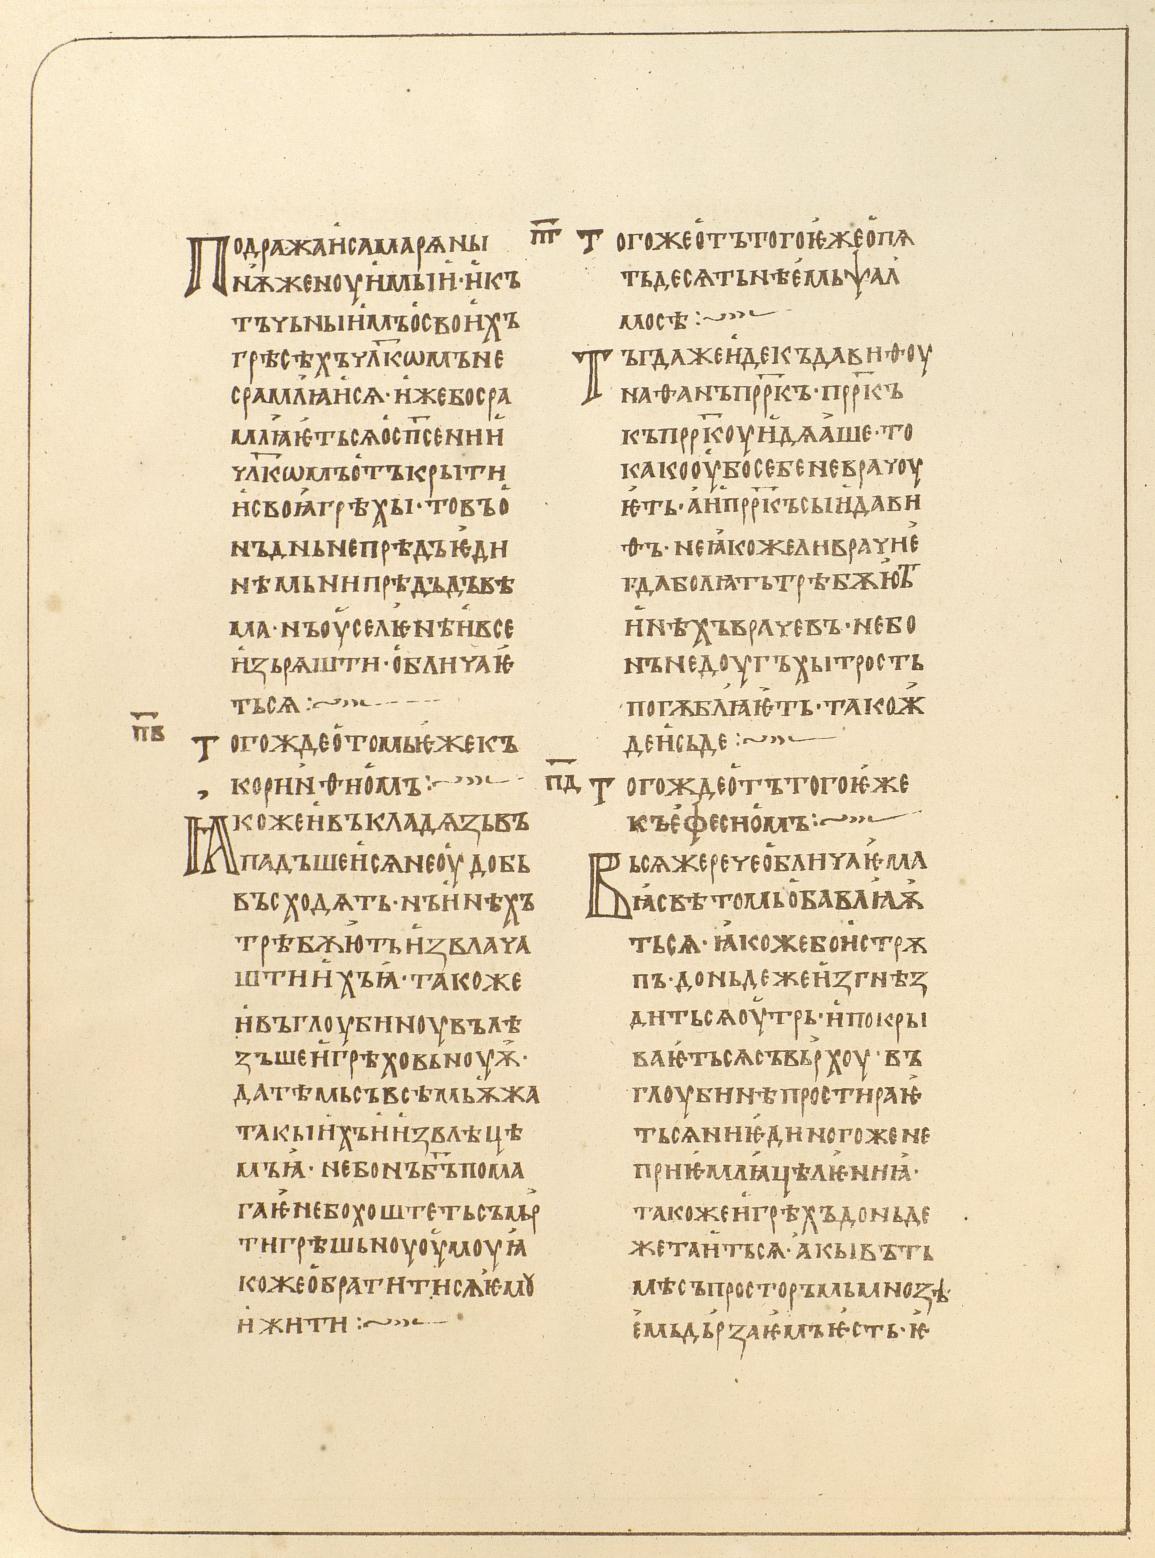 Подражаи самарѧны
нѫ женоу имыи · и къ
тъчьныимъ о своихъ
грѣсѣхъ чл҃кѡмъ не
срамлꙗисѧ · иже бо сра
млꙗѥтьсѧ о сп҃сении
чл҃кѡмъ отъкрыти
и своꙗ грѣхы · то въ о
нъ дьнь не прѣдъ ѥди
нѣмь ни прѣдъ дъвѣ
ма · нъ оу селѥнѣи все
изьрѧшти · обличаѥ
тьсѧ :~
п҃в
Тогожде отомь ѥже къ
коринѳномъ :~
Ꙗкоже и въ кладѧзь въ
падъшеисѧ не оудобь
въсходѧть · нъ и нѣхъ
трѣбѫють извлача
штиихъ ꙗ · такоже
и въ глоубиноу вълѣ
зъшеи грѣховьноуѭ ·
датѣмь съ всѣмь ѫжа
такыихъ и извлѣцѣ
мъ ꙗ · не бо нъ б҃ъ пома
гаѥ не бо хоштеть съмьр
ти грѣшьноуоумоу ꙗ
коже обратити сѧ ѥмоу
и жити :~
п҃г
Тогоже отъ того ѥже о пѧ
тьдесѧтьнѣемь ѱал
мосѣ :~
Тъгда же иде къ давиѳоу
наѳанъ пррк҃ъ · пррк҃ъ
къ пррк҃оу идѧаше · то
како оубо себе не врачоу
ѥть · а и пррк҃ъ сыи дави
ѳъ · не ꙗкоже ли врачи е
гда болꙗть трѣбѫють
инѣхъ врачевъ · не бо
нъ недоугъ хытрость
погѫблꙗѥть · також
де и сьде :~
п҃д
Тогожде отъ того ѥже
къ ефесномъ :~
Вьсѧ же рече обличаѥма
ꙗ свѣтомь обавлꙗѭ
тьсѧ · ꙗкоже бо и стрѫ
пъ · доньдеже изгнѣз
дитьсѧ оутрь · и покры
ваѥтьсѧ съ вьрхоу · въ
глоубинѣ простираѥ
тьсѧ ни ѥдиногоже не
приѥмлꙗ цѣлѥниꙗ ·
такоже и грѣхъ доньде
же таитьсѧ · акы въ ть
мѣ съ просторъмь мнозѣ
емь дьрзаѥмъ ѥсть · ѥ